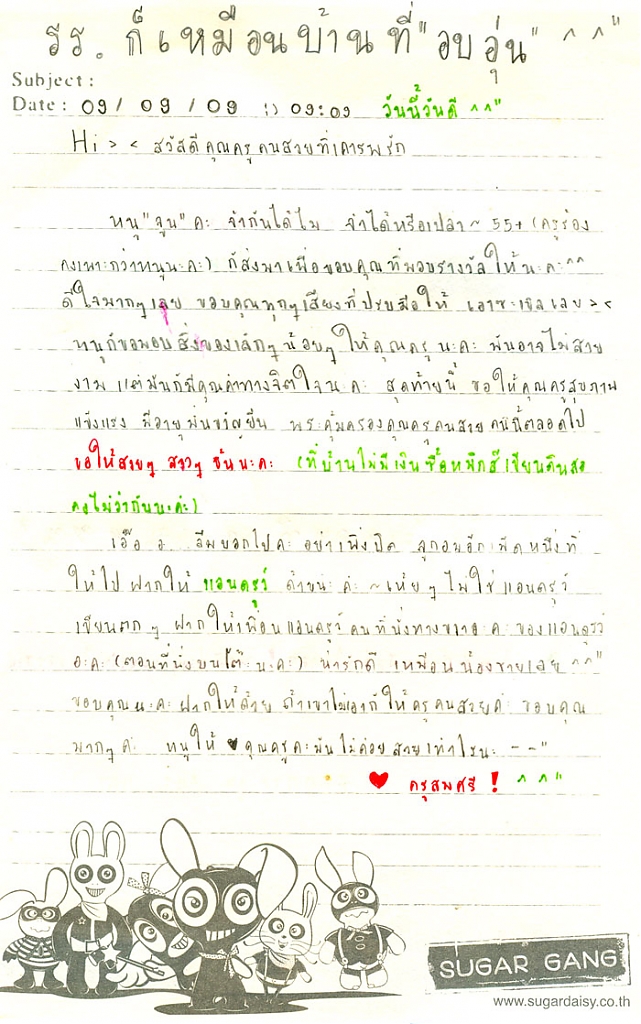 รร. ก็เหมือนบ้านที่ "อบอุ่น" ^^"
Subject :
Date : 09 / 09 / 09 :) 09:09 วันนี้วันดี ^^"
Hi > < สวัสดีคุณครูคนสวยที่เคารพรัก
หนู "จูน" ค่ะ จำกันได้ไม จำได้หรือเปล่า ~ 55+ (ครูร้อง
คงเพราะกว่าหนูนะคะ) ก็ส่งมาเพื่อขอบคุณที่มอบรางวัลให้นะคะ ^^
ดีใจมากๆเลย ขอบคุณทุกๆเสียงที่ปรบมือให้ เอาซะเขิลเลย > <
หนูก็ขอมอบสิ่งของเล็กๆน้อยๆให้คุณครูนะคะ มันอาจไม่สวย
งาม แต่มันก็มีคุณค่าทางจิตใจนะคะ สุดท้ายนี้ ขอให้คุณครูสุขภาพ
แข็งแรง มีอายุมั่นขวัญยืน พระคุ้มครองคุณครูคนสวยคนนี้ตลอดไป
ขอให้สวยๆ สาวๆ ขึ้นนะคะ (ที่บ้านไม่มีเงินซื้อหมึกสี เขียนดินสอ
คงไม่ว่ากันนะค่ะ)
เอ้อ ลืมบอกไปคะ อย่าเพิ่งปิด ลูกอมอีกเม็ดหนึ่งที่
ให้ไป ฝากให้ แอนดรูว์ ด้วยนะค่ะ ~ เห้ยๆ ไม่ใช่แอนดรูว์
เขียนตกๆ ฝากให้เพื่อนแอนดรูว์คนที่นั่งทางขวาอะคะ ของแอนดรูว์
อะคะ (ตอนที่นั่งบนโต๊ะนะคะ) น่ารักดี เหมือนน้องชายเลย ^^"
ขอบคุณนะคะ ฝากให้ด้วย ถ้าเขาไม่เอาก็ให้ครูคนสวยค่ะ ขอบคุณ
มากๆค่ะ หนูให้ ♥ คุณครูคะ มันไม่ค่อยสวยเท่าไรนะ - -"
♥ ครูสมศรี ! ^^"
SUGAR GANG
www.sugardaisy.co.th